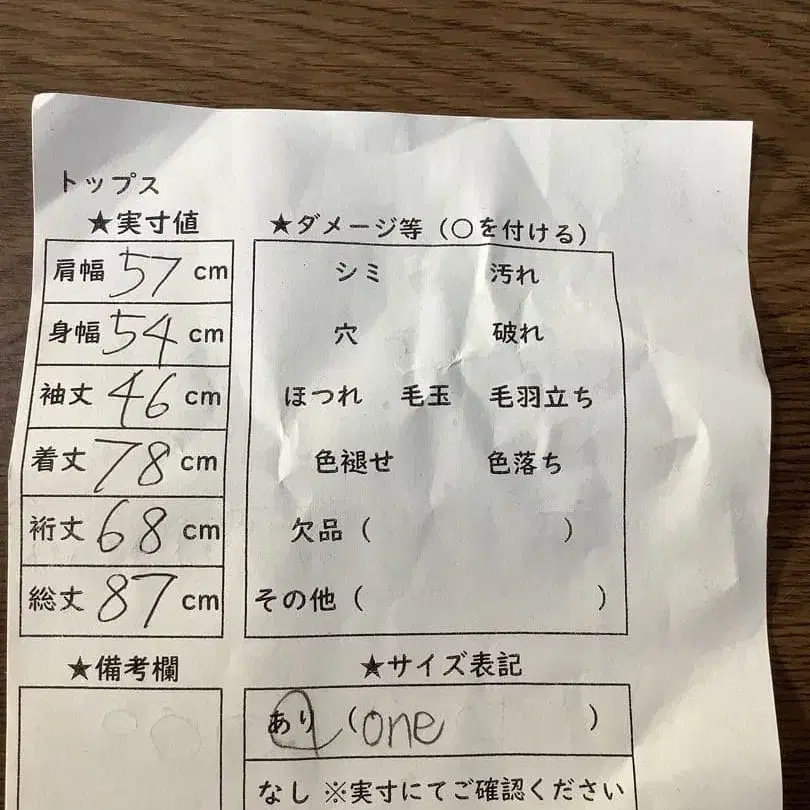 トップス
★実寸値
肩幅 57 cm
身幅 54 cm
袖丈 46 cm
着丈 78 cm
裄丈 68 cm
総丈 87 cm
★ダメージ等(○を付ける)
シミ 汚れ
穴 破れ
ほつれ 毛玉 毛羽立ち
色褪せ 色落ち
欠品( )
その他( )
★備考欄
★サイズ表記
あり(one )
なし ※実寸にてご確認ください